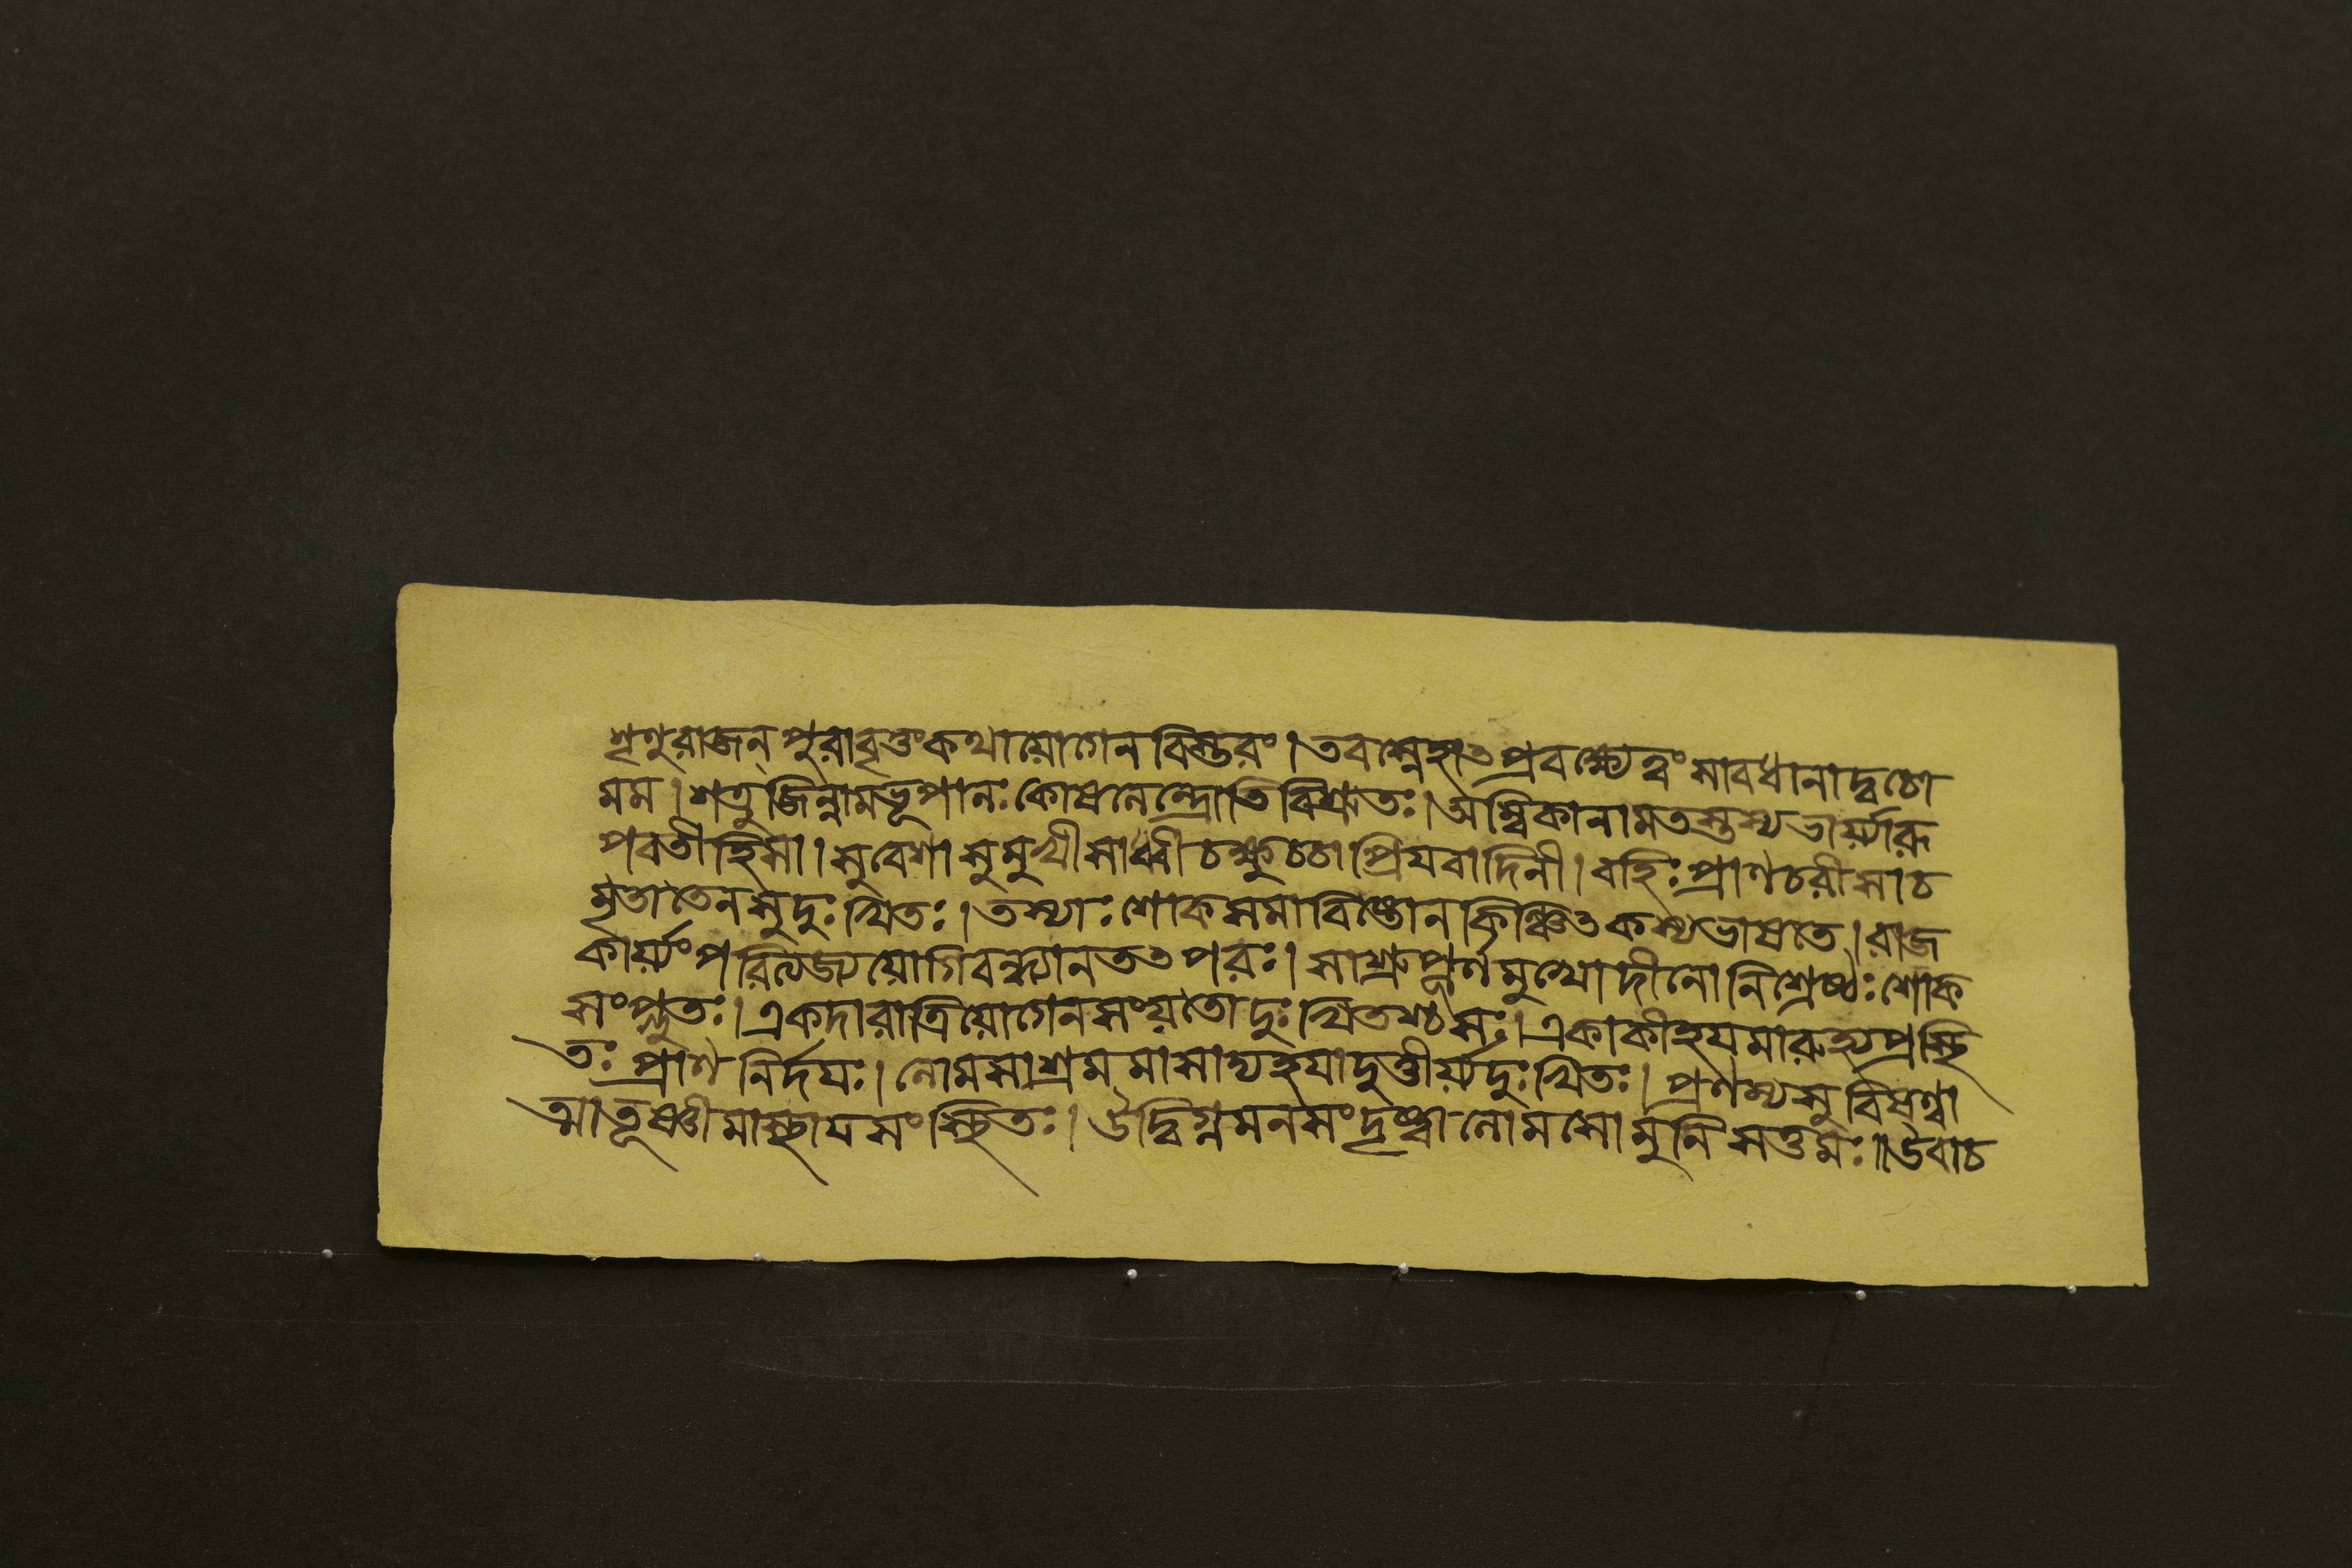 শৃণুরাজন্পুরাবৃত্তংকথায়োগেনবিস্তরং।তবস্নেহাৎপ্রবক্ষ্যেত্বংসাবধানাদ্বচো
মম।শত্রুজিন্নামভূপালঃকোষলেন্দ্রোতিবিশ্রুতঃ।অম্বিকানামতস্তস্যভার্য়্যারূ
পবতীহিসা।সুবেশাসুমুখীসাধ্বীচক্ষুচচাপ্রিযবাদিনী।বহিঃপ্রাণচরীসাচ
মৃতাতেনসুদুঃখিতঃ।তস্যাঃশোকসমাবিষ্টোনকিঞ্চিৎকস্যভাষতে।রাজ
কার্য়্যংপরিত্যজ্যয়োগিবন্ধ্যানতৎপরঃ।সাশ্রুপূর্ণমুখোদীনোনিশ্রেষ্ঠঃশোক
সংপ্লুতঃ।একদারাত্রিয়োগেনসংয়তোদুঃখিতশ্চসঃ।একাকীহযমারুহ্যপ্রস্থি
তঃপ্রাণনির্দযঃ।লোমসাশ্রমমাসাদ্যহযাদুত্তীর্য়্যদুঃখিতঃ।প্রণম্যসুবিষণ্ণা
ত্মাতূষ্ণীমাস্থাযসংস্থিতঃ।ঔদ্বিগ্নমনসংদৃষ্ট্বালোমসোমুনিসত্তমঃ॥উবাচ